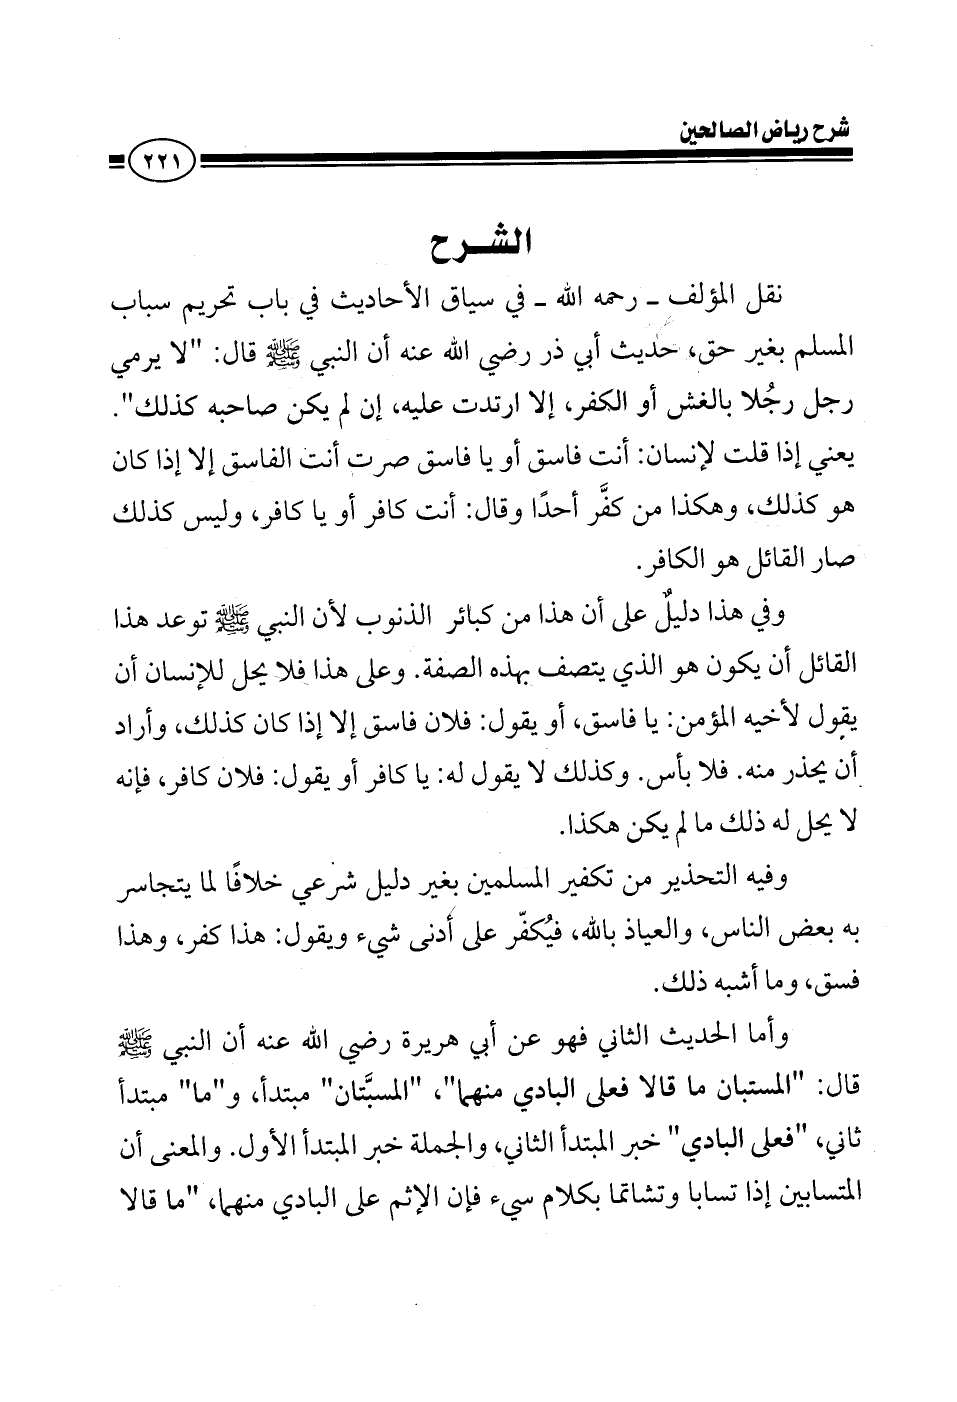 شرح رياض الصالحين
٢٢١
الشـرح
نقل المؤلف ـ رحمه الله ـ في سياق الأحاديث في باب تحريم سباب
المسلم بغير حق، حديث أبي ذر رضي الله عنه أن النبي ﷺ قال: "لا يرمي
رجل رجُلا بالغش أو الكفر، إلا ارتدت عليه، إن لم يكن صاحبه كذلك".
يعني إذا قلت لإنسان: أنت فاسق أو يا فاسق صرت أنت الفاسق إلا إذا كان
هو كذلك، وهكذا من كفَّر أحدًا وقال: أنت كافر أو يا كافر، وليس كذلك
صار القائل هو الكافر.
وفي هذا دليلٌ على أن هذا من كبائر الذنوب لأن النبي ﷺ توعد هذا
القائل أن يكون هو الذي يتصف بهذه الصفة. وعلى هذا فلا يحل للإنسان أن
يقول لأخيه المؤمن: يا فاسق، أو يقول: فلان فاسق إلا إذا كان كذلك، وأراد
أن يحذر منه. فلا بأس. وكذلك لا يقول له: يا كافر أو يقول: فلان كافر، فإنه
لا يحل له ذلك ما لم يكن هكذا.
وفيه التحذير من تكفير المسلمين بغير دليل شرعي خلافًا لما يتجاسر
به بعض الناس، والعياذ بالله، فيُكفّر على أدنى شيء ويقول: هذا كفر، وهذا
فسق، وما أشبه ذلك.
وأما الحديث الثاني فهو عن أبي هريرة رضي الله عنه أن النبي ﷺ
قال: "المستبان ما قالا فعلى البادي منهما"، "المسبَّتان" مبتدأ، و"ما" مبتدأ
ثاني، "فعلى البادي" خبر المبتدأ الثاني، والجملة خبر المبتدأ الأول. والمعنى أن
المتسابين إذا تسابا وتشاتما بكلام سيء فإن الإثم على البادي منهما، "ما قالا